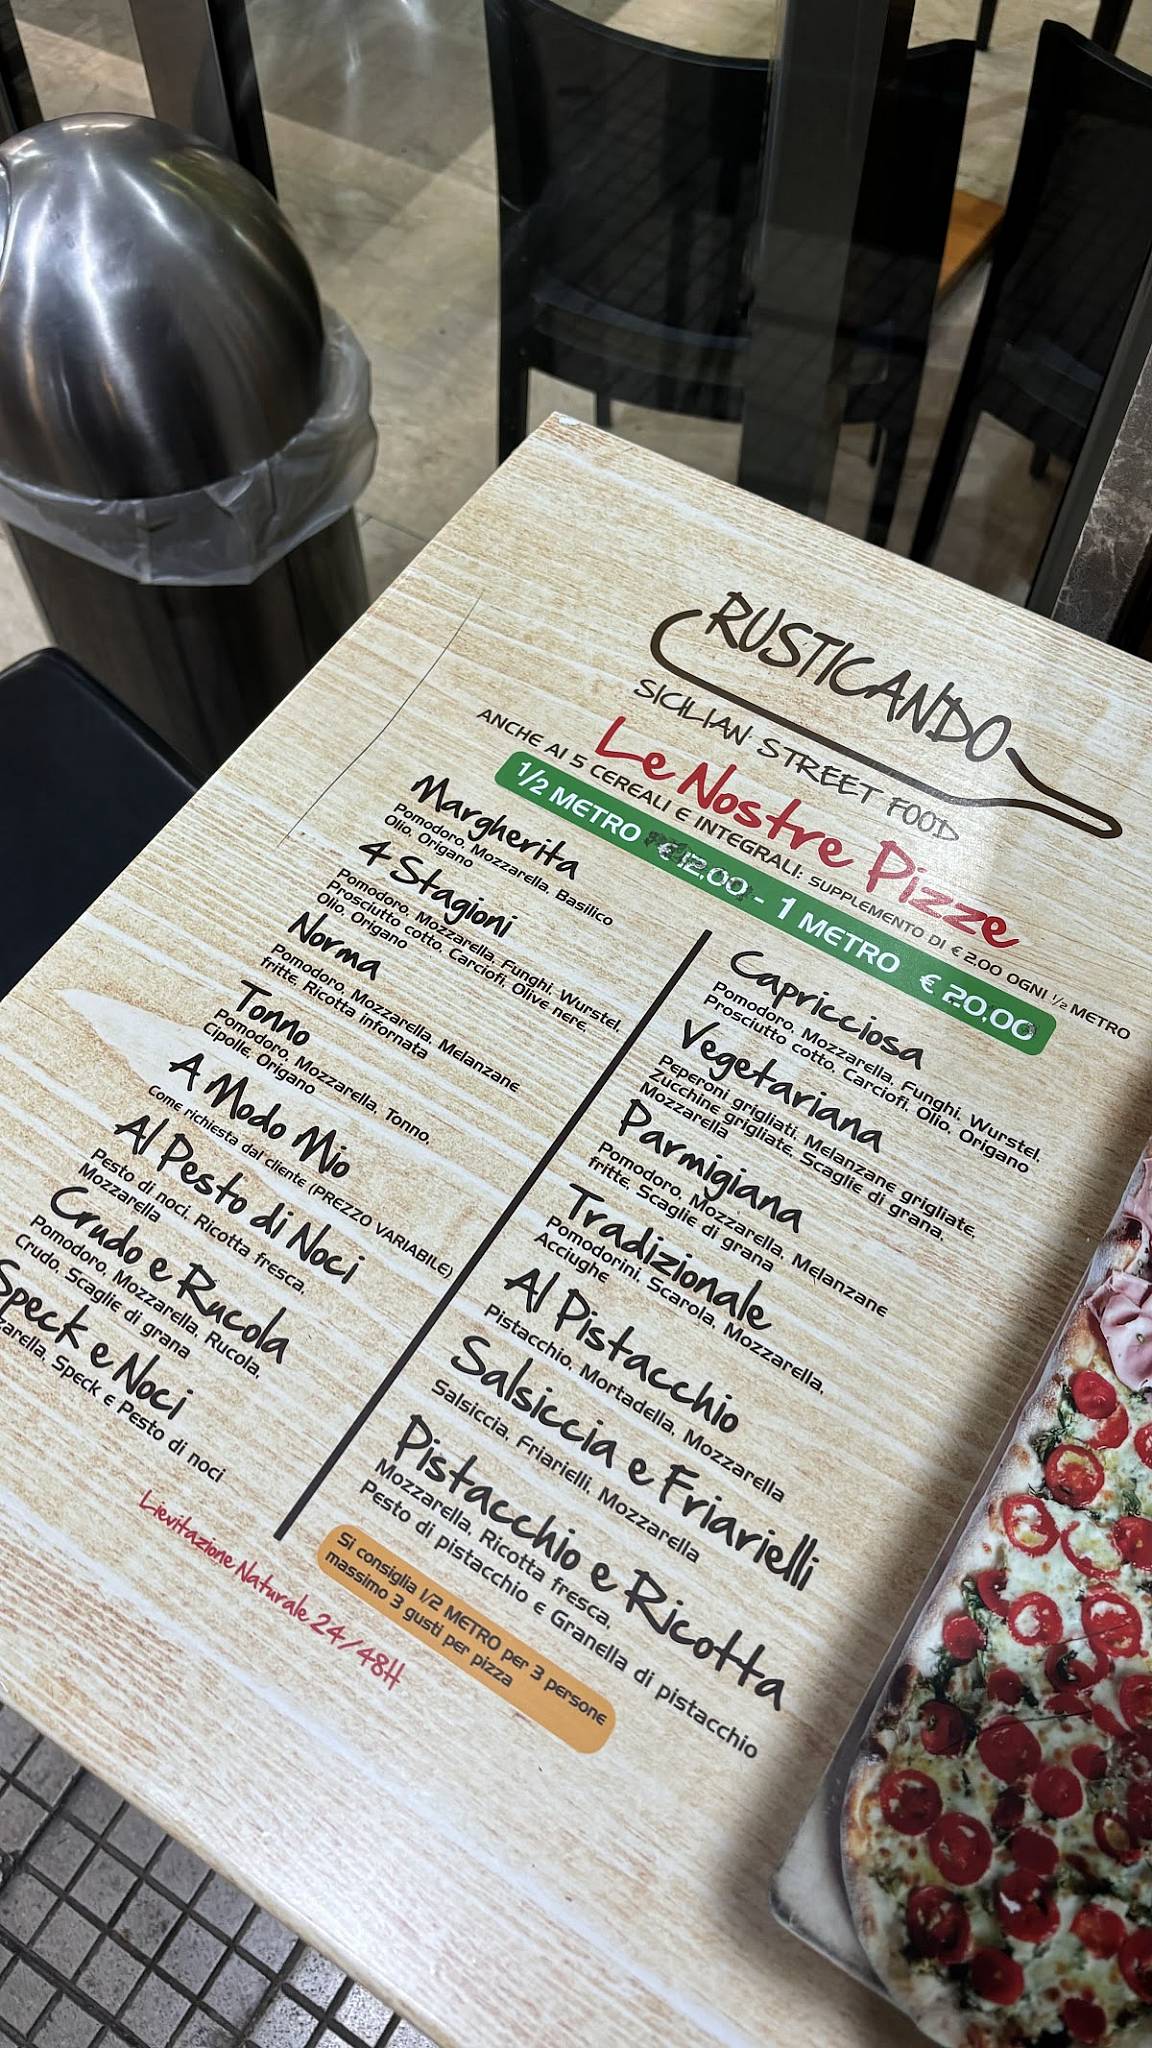 RUSTICANDO
SICILIAN STREET FOOD
Le Nostre Pizze
ANCHE AI 5 CEREALI E INTEGRALI: SUPPLEMENTO DI € 2.00 OGNI 1/2 METRO
1/2 METRO €12,00 - 1 METRO € 20,00
Margherita
Pomodoro, Mozzarella, Basilico
Olio, Origano
4 Stagioni
Pomodoro, Mozzarella, Funghi, Wurstel,
Prosciutto cotto, Carciofi, Olive nere,
Olio, Origano
Norma
Pomodoro, Mozzarella, Melanzane
fritte, Ricotta infornata
Tonno
Pomodoro, Mozzarella, Tonno,
Cipolle, Origano
A Modo Mio
Come richiesta dal cliente (PREZZO VARIABILE)
Al Pesto di Noci
Pesto di noci, Ricotta fresca,
Mozzarella
Crudo e Rucola
Pomodoro, Mozzarella, Rucola,
Crudo, Scaglie di grana
Speck e Noci
zarella, Speck e Pesto di noci
Capricciosa
Pomodoro, Mozzarella, Funghi, Wurstel,
Prosciutto cotto, Carciofi, Olio, Origano
Vegetariana
Peperoni grigliati, Melanzane grigliate,
Zucchine grigliate, Scaglie di grana,
Mozzarella
Parmigiana
Pomodoro, Mozzarella, Melanzane
fritte, Scaglie di grana
Tradizionale
Pomodorini, Scarola, Mozzarella,
Acciughe
Al Pistacchio
Pistacchio, Mortadella, Mozzarella
Salsiccia e Friarielli
Salsiccia, Friarielli, Mozzarella
Pistacchio e Ricotta
Mozzarella, Ricotta fresca,
Pesto di pistacchio e Granella di pistacchio
Si consiglia 1/2 METRO per 3 persone
massimo 3 gusti per pizza
Lievitazione Naturale 24/48H